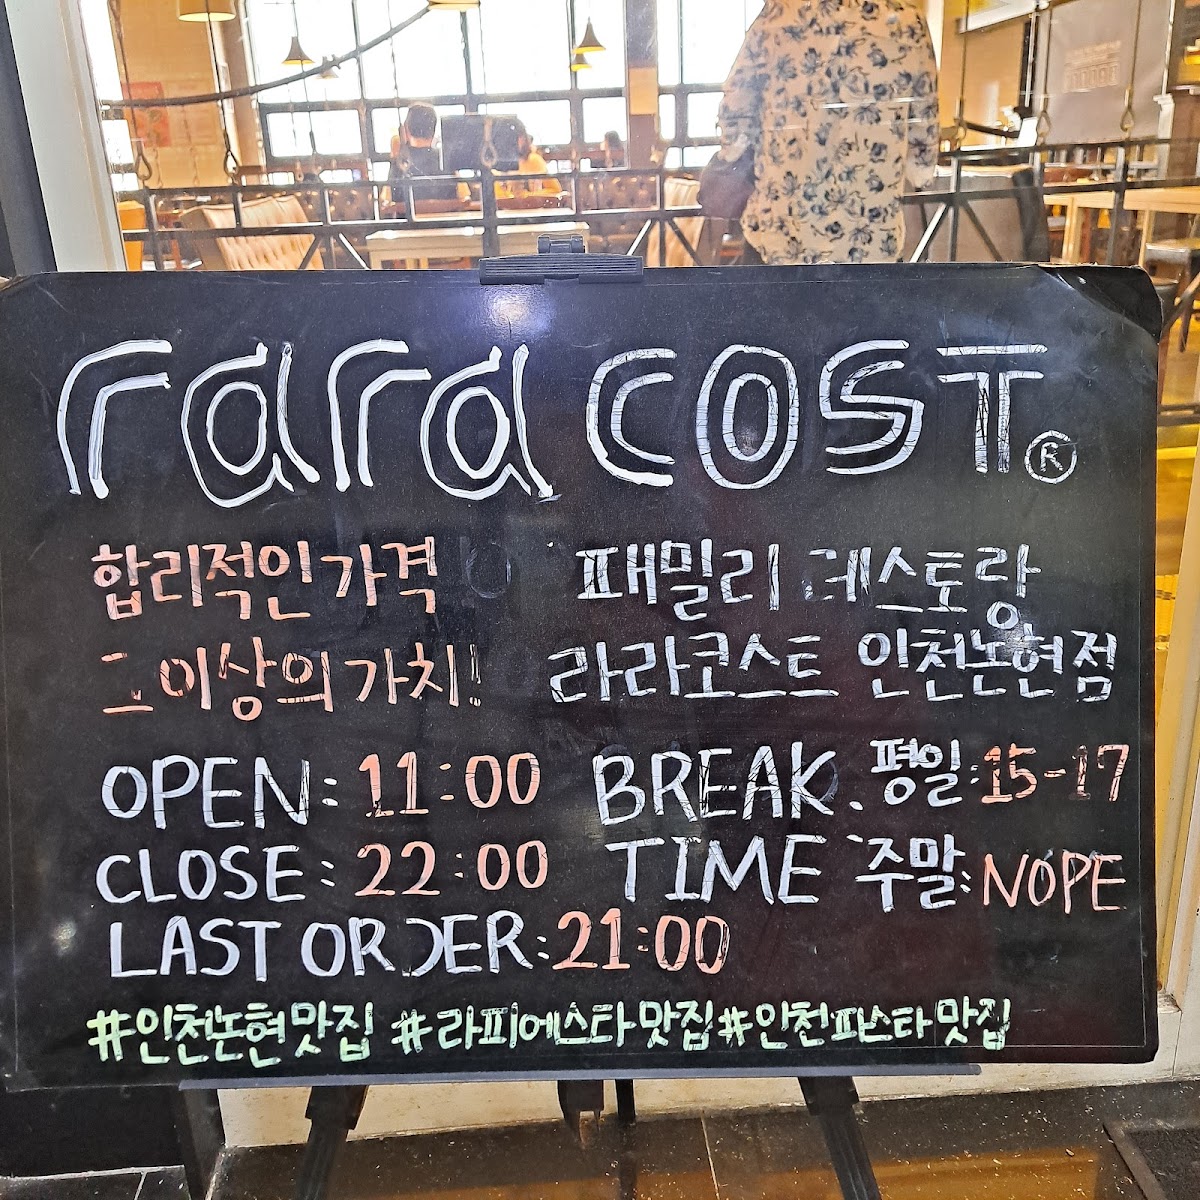 rara COST®
합리적인 가격
그 이상의 가치!
패밀리 레스토랑
라라코스트 인천논현점
OPEN: 11:00
CLOSE: 22:00
LAST ORDER: 21:00
BREAK TIME
평일: 15-17
주말: NOPE
#인천논현맛집 #라피에스타맛집 #인천파스타맛집